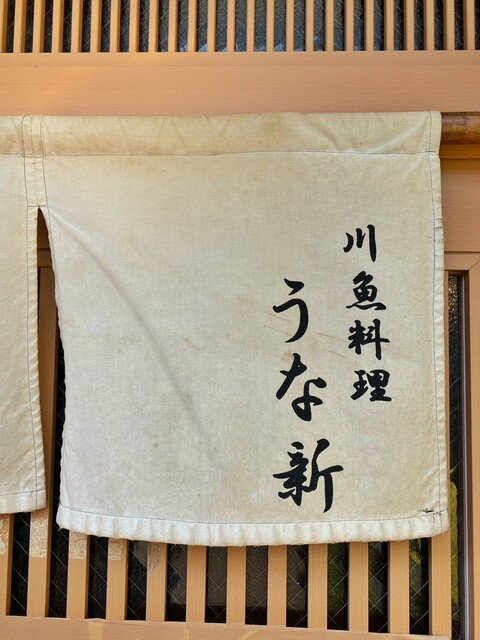 川魚料理
うな新